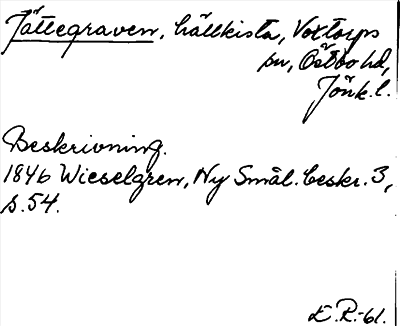 Jättegraven, hällkista, Voxtorps
sn, Östbo hd,
Jönk.l.
Beskrivning.
1846 Wieselgren, Ny Smål. beskr. 3,
s. 54.
E.R.-61.